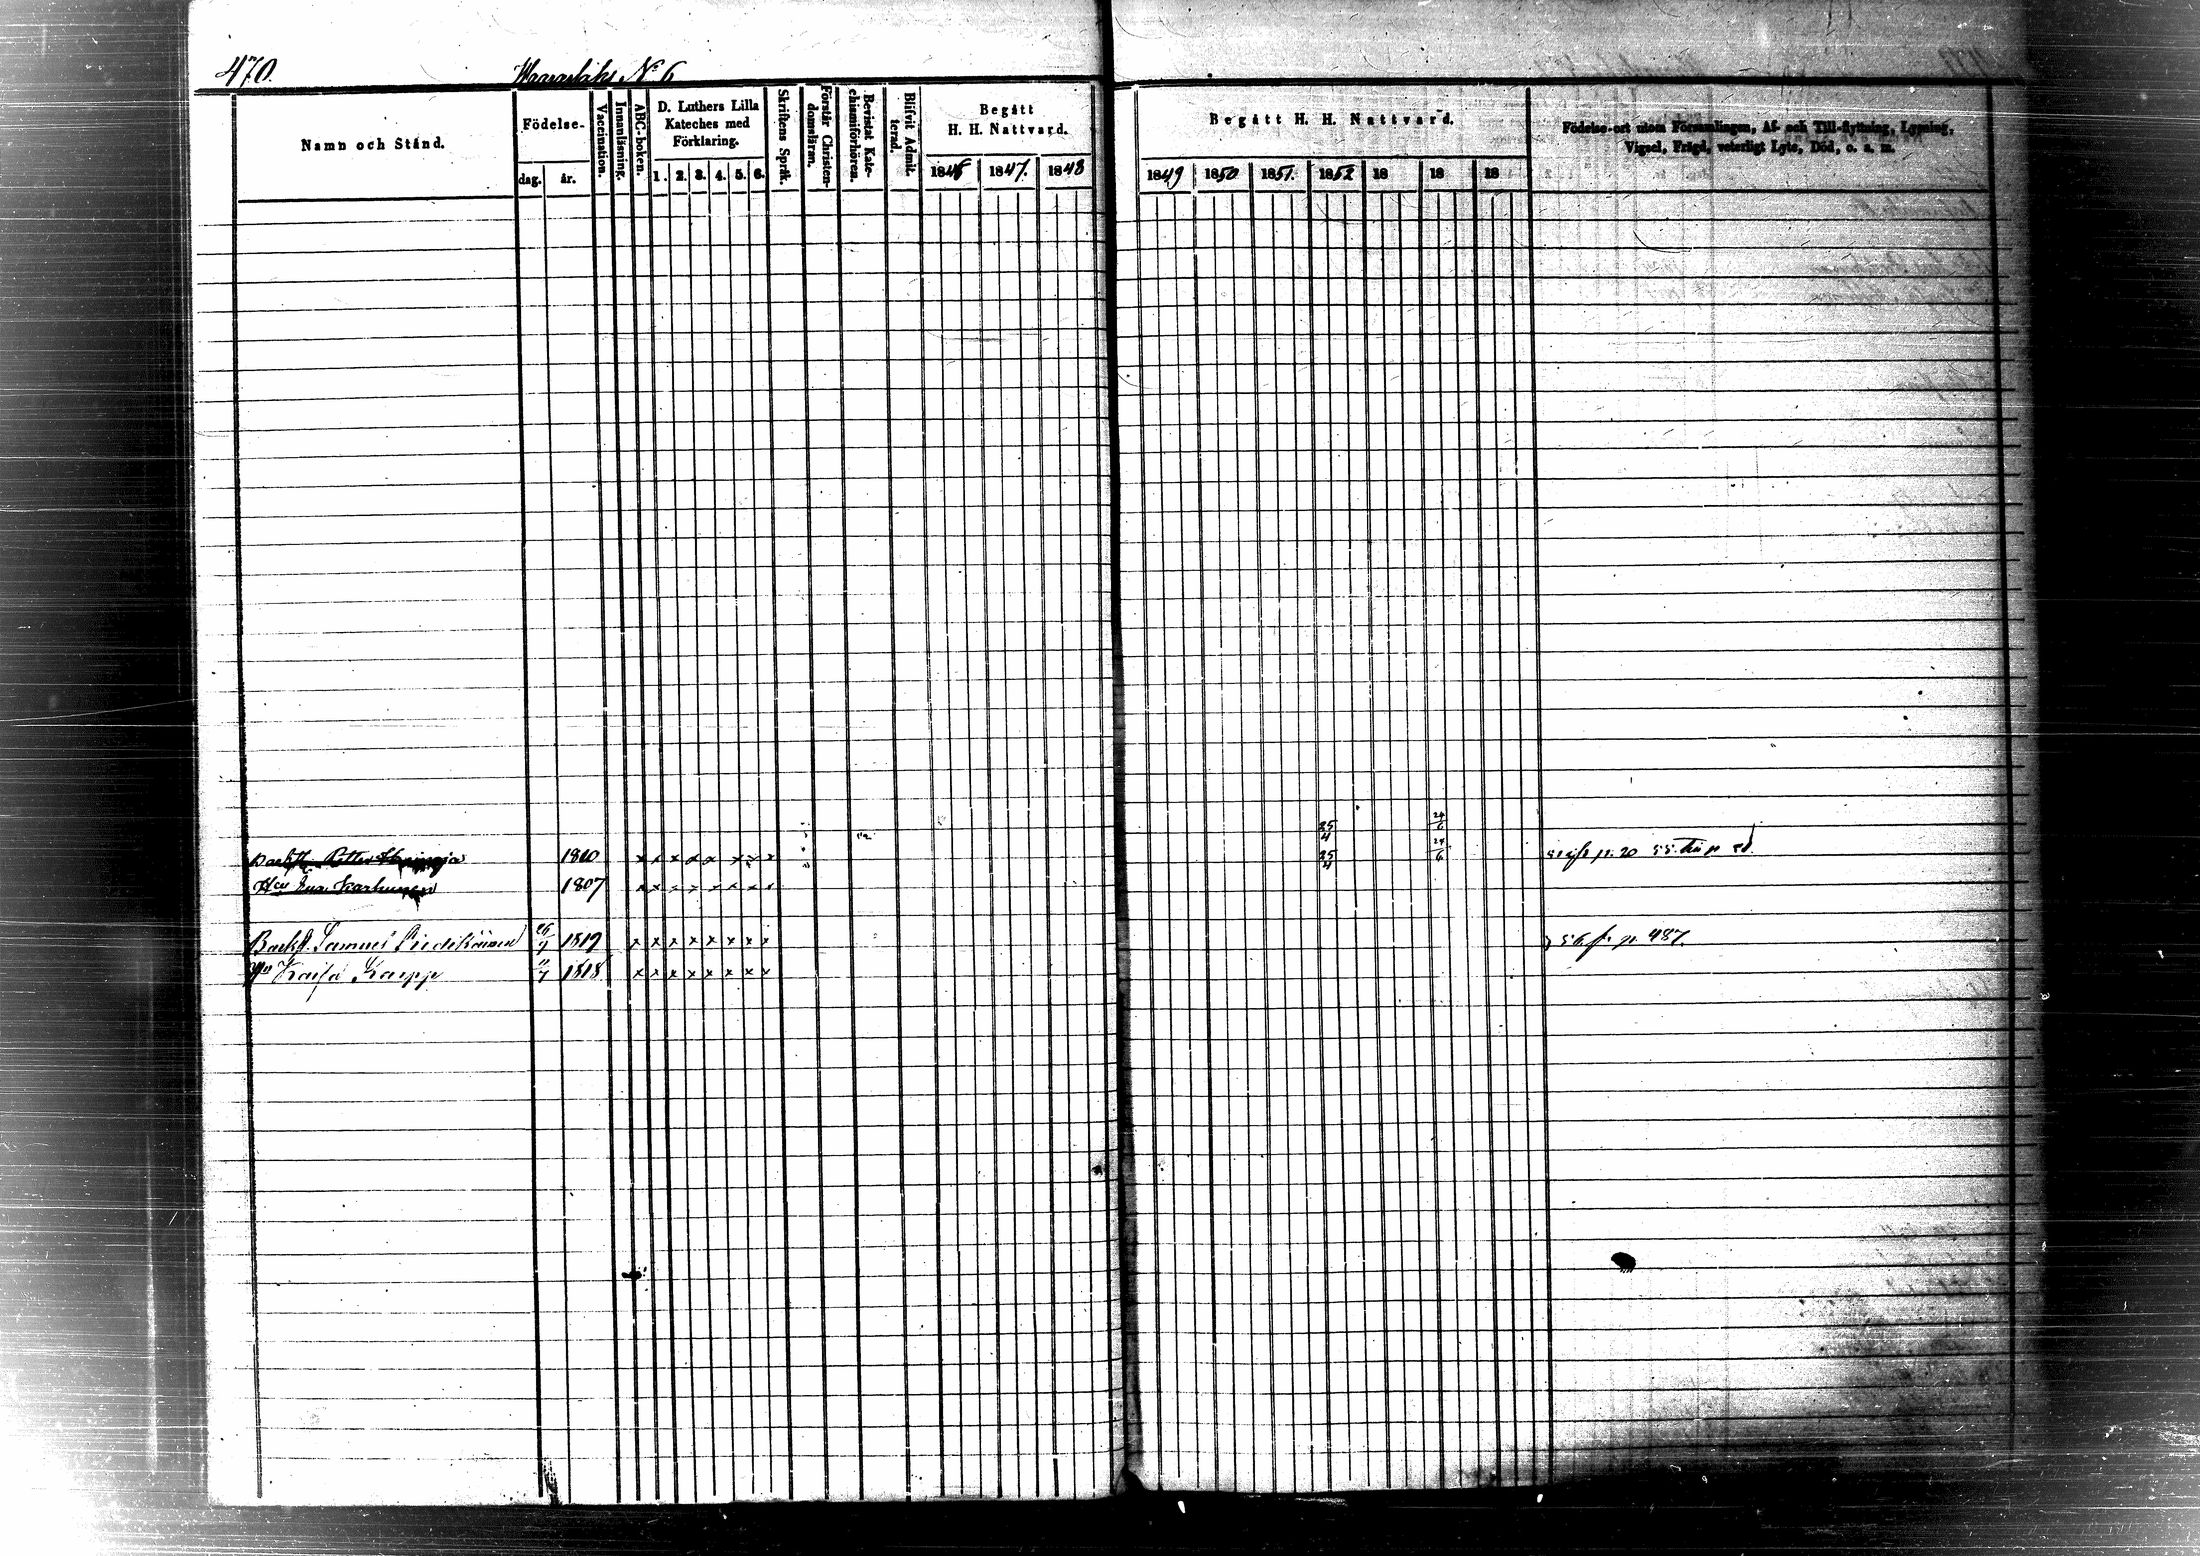 470. No 6
Namn och Stånd.
Födelse-
dag. år.
Vaccination.
Innanläsning.
ABC-boken.
D. Luthers Lilla
Kateches med
Förklaring.
1. 2. 3. 4. 5. 6.
Skriftens Språk.
Förstår Christen-
domsläran.
Bevistat Kate-
chismiförhören.
Blifvit Admit-
terad.
Begått
H. H. Nattvard.
1846 1847. 1848
Begått H. H. Nattvard.
1849 1850 1851. 1852 18 18 18
Födelse-ort utom Församlingen, Af- och Till-flyttning, Lysning,
Vigsel, Frägd, veterligt Lyte, Död, o. s. m.
Petter 1810 x x x x x x x x 25/4 24/6 p. 20 55
Hu Eva Karhunen 1807 x x x x x x x x 25/4 24/6
Backst. Samuel 26/7 1819 x x x x x x x x 56 fr. p. 487.
Hu Kaisa Kaupp 1818 x x x x x x x x